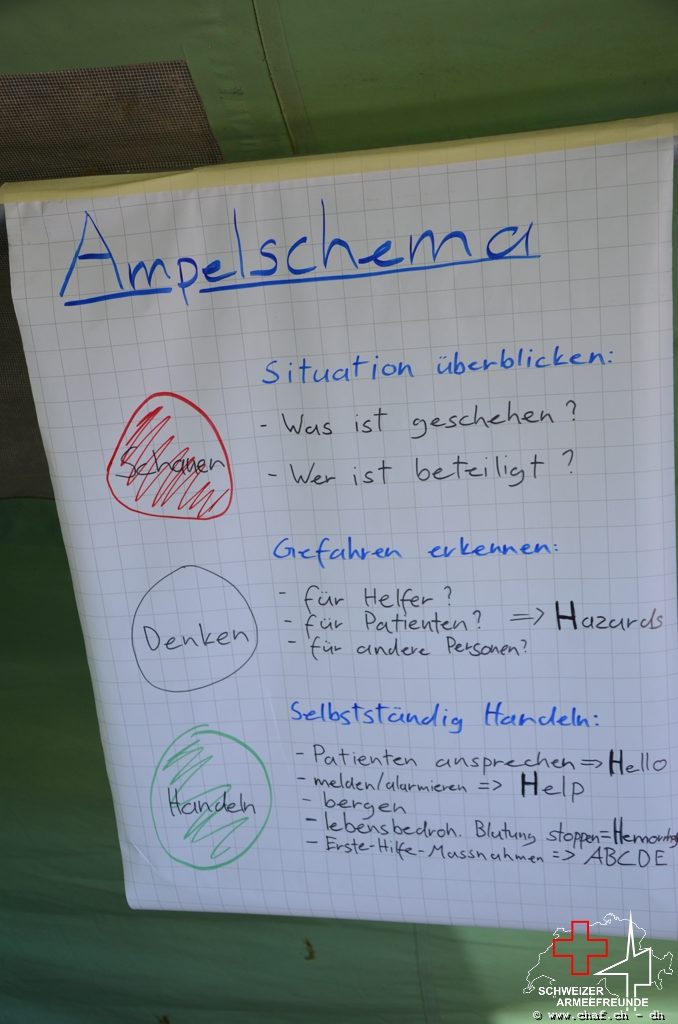 Ampelschema
Situation überblicken:
- Was ist geschehen?
Schauen
- Wer ist beteiligt?
Gefahren erkennen:
- für Helfer?
- für Patienten? => Hazards
- für andere Personen?
Denken
Selbstständig Handeln:
- Patienten ansprechen => Hello
- melden/alarmieren => Help
- bergen
Handeln
- lebensbedroh. Blutung stoppen=
- Erste-Hilfe-Massnahmen => ABCDE
SCHWEIZER
ARMEEFREUNDE
© www.chaf.ch - dh